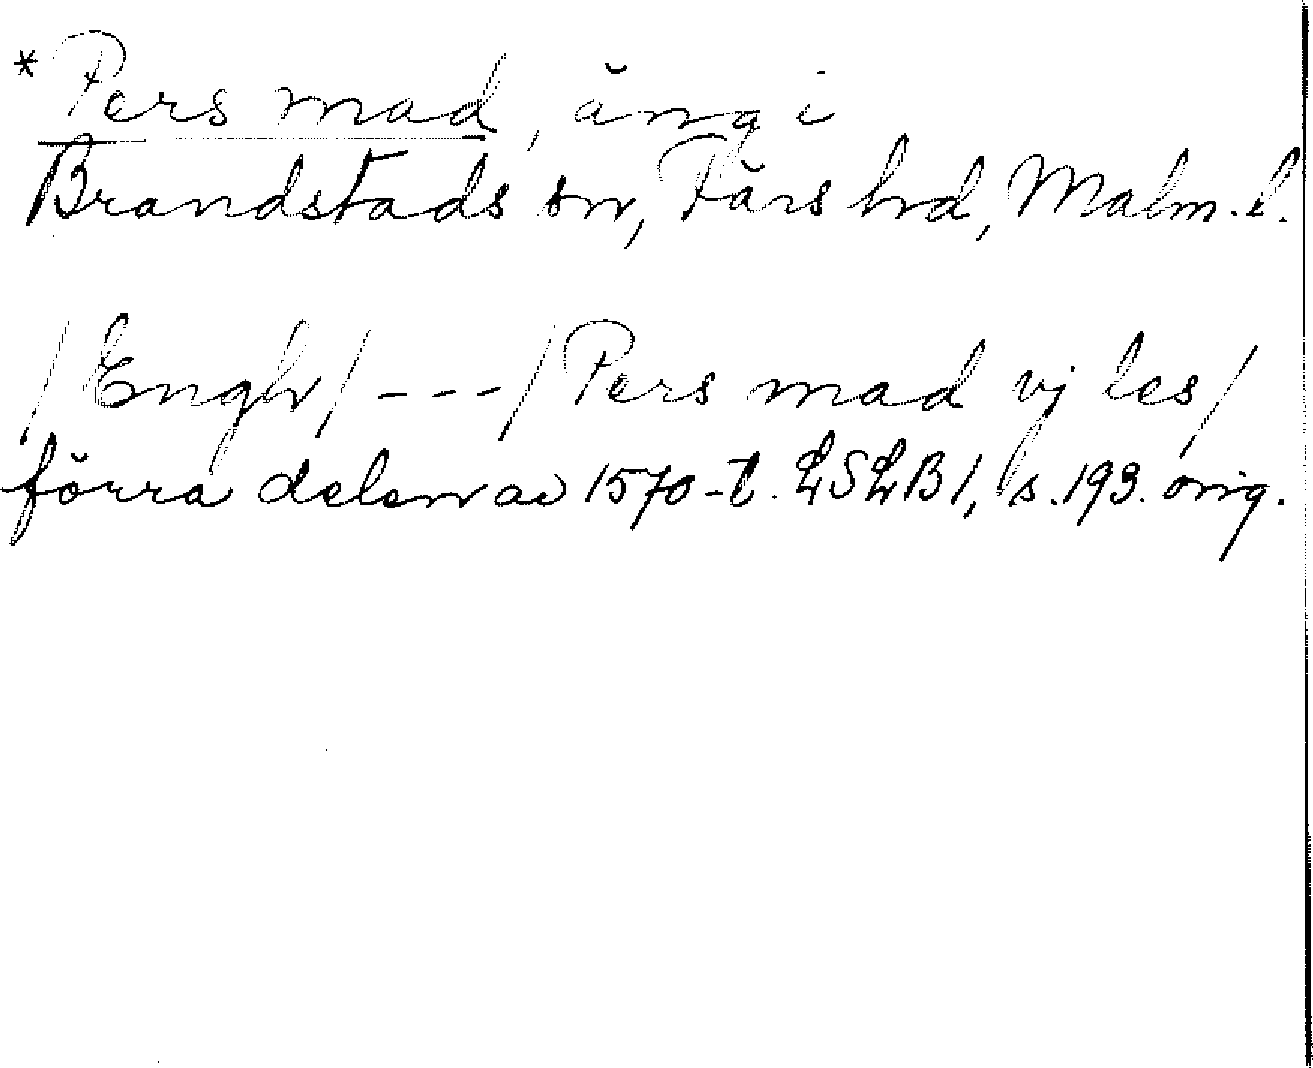 *Pers mad, äng i
Brandstads sn, Färs hd, Malm. l.
/Engh/---/Pers mad vj les/
förra delen av 1570-t. LSLB 1, s. 193. orig.